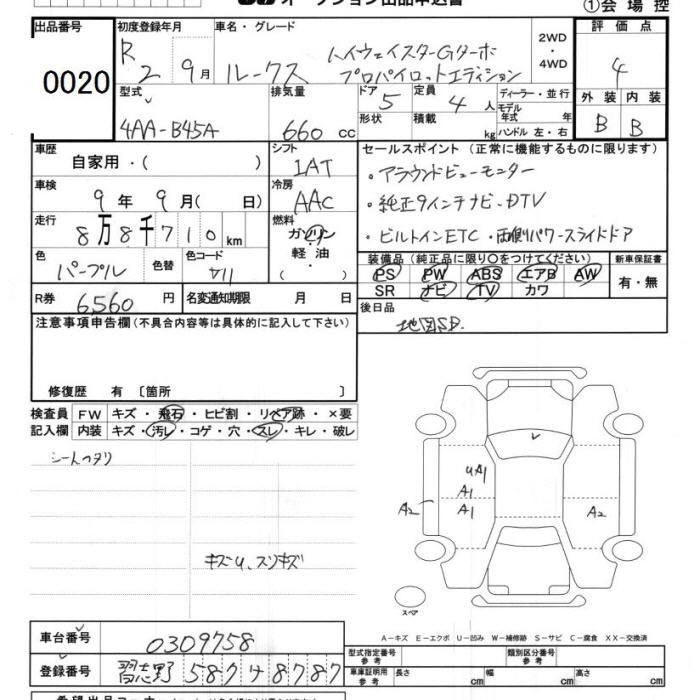 オークション出品申込書
①会場控
出品番号 0020
初度登録年月 R2 9月
車名・グレード ルークス ハイウェイスターGターボ プロパイロットエディション
2WD・4WD
評価点 4
外装 B 内装 B
型式 4AA-B45A
排気量 660cc
ドア 5
形状
定員 4人
積載 kg
ディーラー・並行
モデル年式 年式
ハンドル 左・右
車歴 自家用・( )
シフト IAT
車検 9年 9月 ( 日)
冷房 AAC
走行 8万8千710km
燃料 ガソリン 軽油・( )
色 パープル
色替
色コード
R券 6560円
名変通知期限 月 日
セールスポイント (正常に機能するものに限ります)
・アラウンドビューモニター
・純正9インチナビ・DTV
・ビルトインETC・両側パワースライドドア
装備品 (純正品に限り○をつけてください)
PS PW ABS エアB AW
SR ナビ TV カワ
新車保証書 有・無
後日品
地図SD.
注意事項申告欄(不具合内容等は具体的に記入して下さい)
修復歴 有 〔箇所 〕
検査員記入欄
FW キズ・飛石・ヒビ割・リペア跡・×要
内装 キズ・汚レ・コゲ・穴・スレ・キレ・破レ
シートヘタリ
キズU、スリキズ
UA1
A1
A1
A2
A2
スペア
A−キズ E−エクボ U−凹み W−補修跡 S−サビ C−腐食 XX−交換済
車台番号 0309758
登録番号 習志野 587 サ 8787
型式指定番号 参考
類別区分番号 参考
車庫証明用 参考 長さ cm 幅 cm 高さ cm